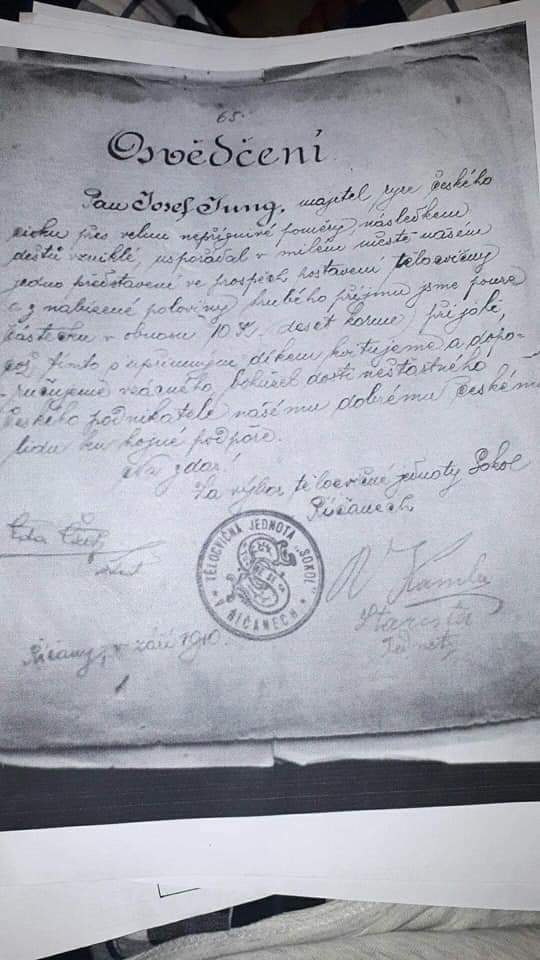 65.
Osvědčení
Pan Josef Jung, majitel ryze českého
cirku přes velmi nepříznivé poměry následkem
dešťů vzniklé, uspořádal v milém městě našem
jedno představení ve prospěch postavení tělocvičny
a z nabízené poloviny hrubého příjmu jsme pouze
částečku v obnosu 10 K deset korun přijali,
což tímto s upřímným díkem kvitujeme a dopo-
ručujeme vzácného, bohužel dosti nešťastného
českého podnikatele našemu dobrému českému
lidu ku hojné podpoře.
Na zdar!
Za výbor tělocvičné jednoty Sokol
Říčanech
TĚLOCVIČNÁ JEDNOTA „SOKOL“
V ŘÍČANECH
Kámla
Starosta
Jednoty
Říčany, v září 1910.